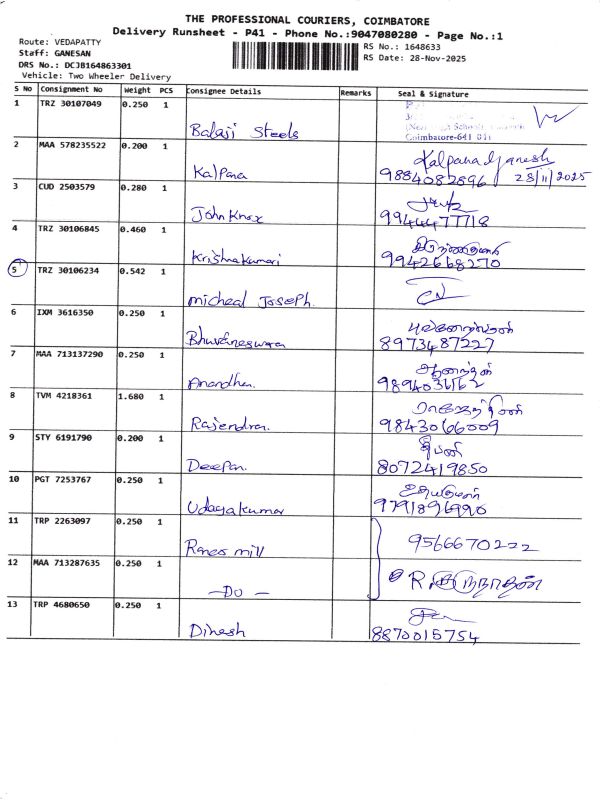 THE PROFESSIONAL COURIERS, COIMBATORE
Delivery Runsheet - P41 - Phone No.:9047080280 - Page No.:1
Route: VEDAPATTY
Staff: GANESAN
DRS No.: DCJB164863301
Vehicle: Two Wheeler Delivery
RS No.: 1648633
RS Date: 28-Nov-2025
S No Consignment No Weight PCS Consignee Details Remarks Seal & Signature
1 TRZ 30107049 0.250 1
Balaji Steels
Coimbatore-641 041
2 MAA 578235522 0.200 1
Kalpana
Kalpana Ganesh
9884082896 28/11/2025
3 CUD 2503579 0.280 1
John Knox
9944477718
4 TRZ 30106845 0.460 1
Krishnakumari
9942668270
5 TRZ 30106234 0.542 1
Micheal Joseph.
6 IXM 3616350 0.250 1
Bhuvaneswara
புவனேஸ்வரன்
8973487227
7 MAA 713137290 0.250 1
Anandhan.
ஆனந்தன்
8 TVM 4218361 1.680 1
Rajendran.
ராஜேந்திரன்
9843066009
9 STY 6191790 0.200 1
Deepan.
தீபன்
8072419850
10 PGT 7253767 0.250 1
Udayakumar
உதயகுமார்
9791896990
11 TRP 2263097 0.250 1
mill
9566670222
12 MAA 713287635 0.250 1
-DO-
R. குருநாதன்
13 TRP 4680650 0.250 1
Dinesh
8870015754